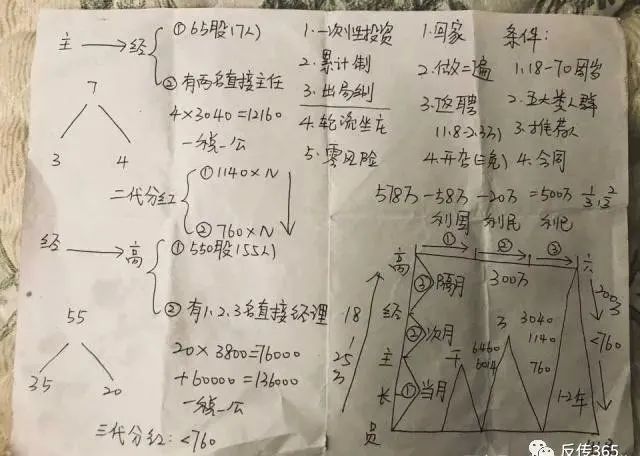 主 → 经
① 65股(7人)
② 有两名直接主任
7
3 4
4×3040=12160
一绩一公
二代分红
① 1140×N
② 760×N
经 → 高
① 550股(55人)
② 有1.2.3名直接经理
55
35 20
20×3800=76000
+60000=136000
一绩一公
三代分红:<760
1.一次性投资
2.累计制
3.出局制
4.轮流坐庄
5.零风险
1.回家
2.做二遍
3.返聘
(1.8-2.3万)
4.开店(免)
条件:
1.18-70周岁
2.五大类人群
3.推荐人
4.合同
578万-58万-20万=500万
利国 利民 利己
高 ① ② ③
③ 隔月
300万
经
② 次月
主
① 当月
长
员
3040
1140
760
6460
<760
1-2年
18
25
万
反传365